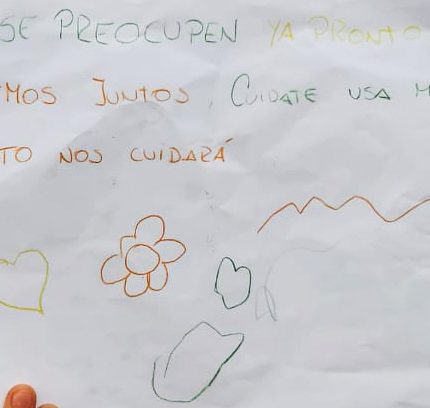 SE PREOCUPEN YA PRONTO
MOS JUNTOS, CUIDATE USA M
TO NOS CUIDARÁ